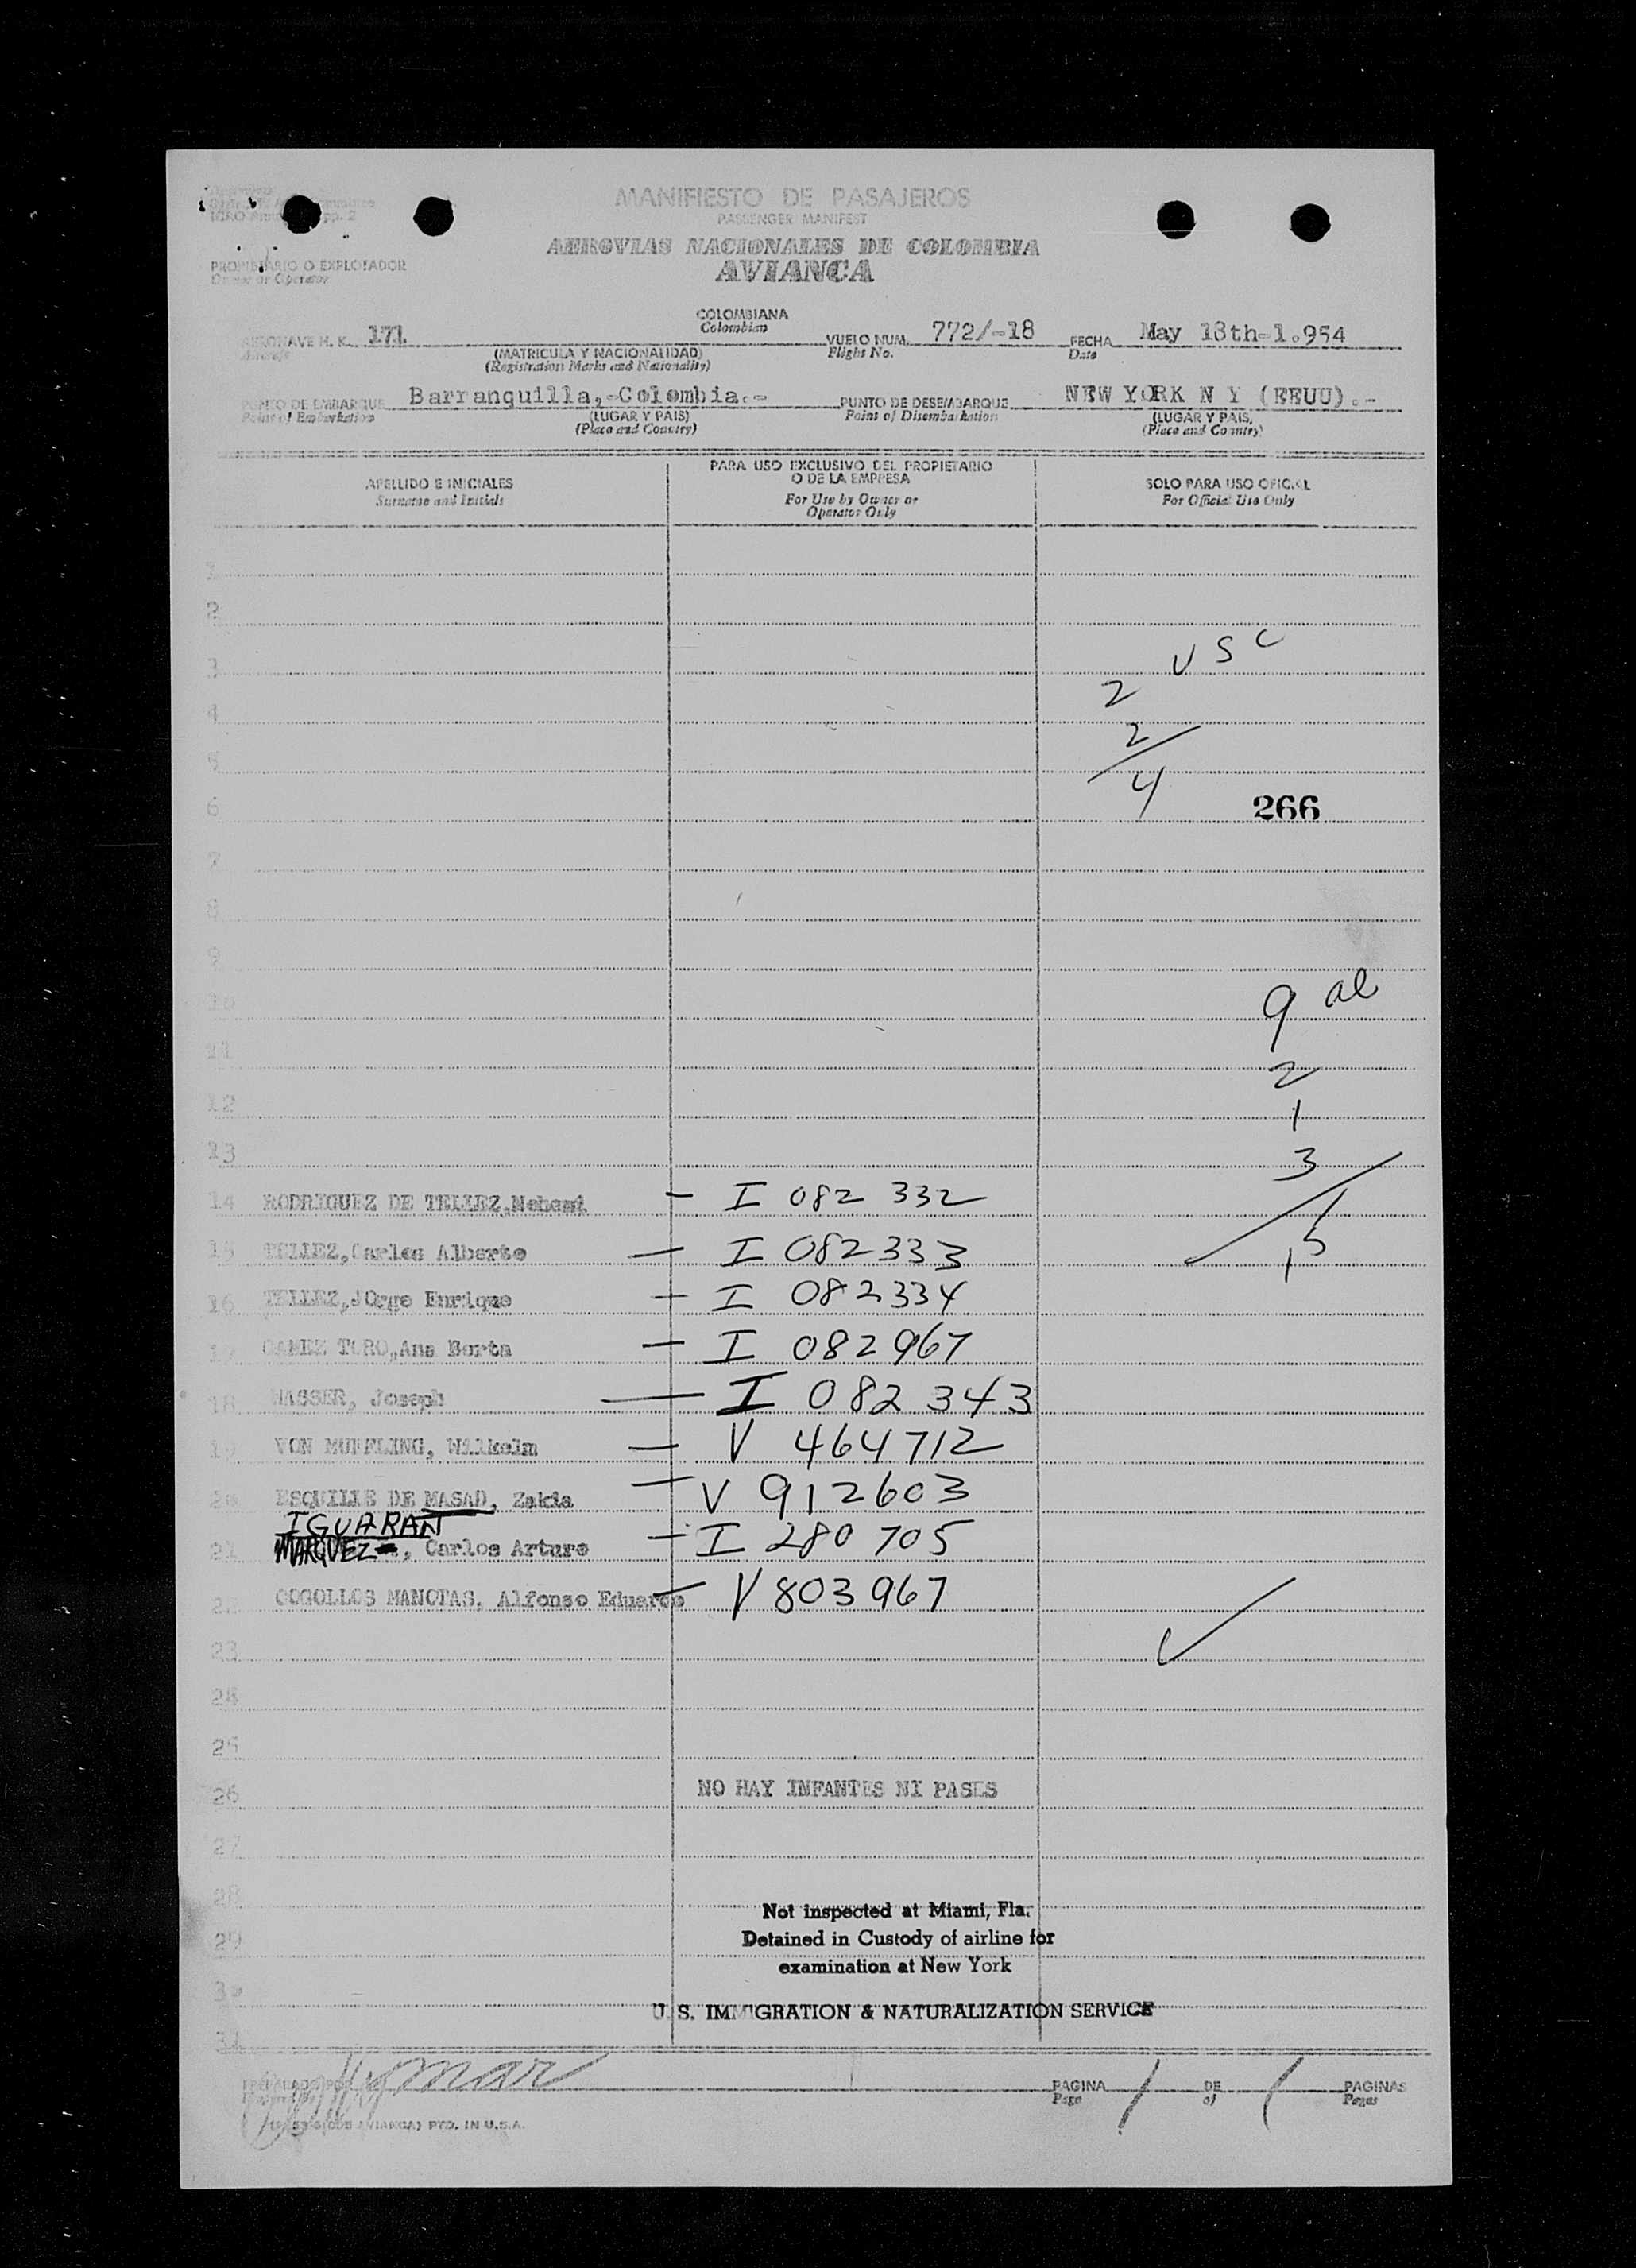 MANIFIESTO DE PASAJEROS
PASSENGER MANIFEST
ICAO pp. 2
AEROVIAS NACIONALES DE COLOMBIA
PROPIETARIO O EXPLOTADOR
Owner or Operator
AVIANCA
COLOMBIANA
Colombian
AERONAVE H. K. 171 VUELO NUM. 772/-18 FECHA May 18th-1.954
Aircraft (MATRICULA Y NACIONALIDAD) Flight No. Date
(Registration Marks and Nationality)
PUNTO DE EMBARQUE Barranquilla,-Colombia.- PUNTO DE DESEMBARQUE NEW YORK N Y (EEUU).-
Point of Embarkation (LUGAR Y PAIS) Point of Disembarkation (LUGAR Y PAIS,
(Place and Country) (Place and Country)
APELLIDO E INICIALES PARA USO EXCLUSIVO DEL PROPIETARIO O DE LA EMPRESA SOLO PARA USO OFICIAL
Surname and Initials For Use by Owner or Operator Only For Official Use Only
1
2
3 USC
4 2
5 2
6 4 266
7
8
9
10 9 al
11 2
12 1
13 3
14 RODRIGUEZ DE TELLEZ, — I 082 332
15 TELLEZ,Carlos Alberto — I 082333 15
16 TELLEZ,JOrge Enrique — I 082334
17 TORO,,Ana Berta — I 082967
18 NASSER, Joseph — I 082 343
19 VON MUFFLING, Wilhelm — V 464712
20 ESQUILLE DE MASAD, Zakia — V 912603
IGUARAN
21 MARQUEZ, Carlos Arturo — I 280 705
22 COGOLLOS MANOTAS, Alfonso Eduardo — V 803967
23 ✓
24
25
26 NO HAY INFANTES NI PASES
27
28
Not inspected at Miami, Fla.
29 Detained in Custody of airline for
examination at New York
30
U. S. IMMIGRATION & NATURALIZATION SERVICE
31
PREPARADO POR PAGINA 1 DE 1 PAGINAS
Page of Pages
AVIANCA) PTD. IN U.S.A.